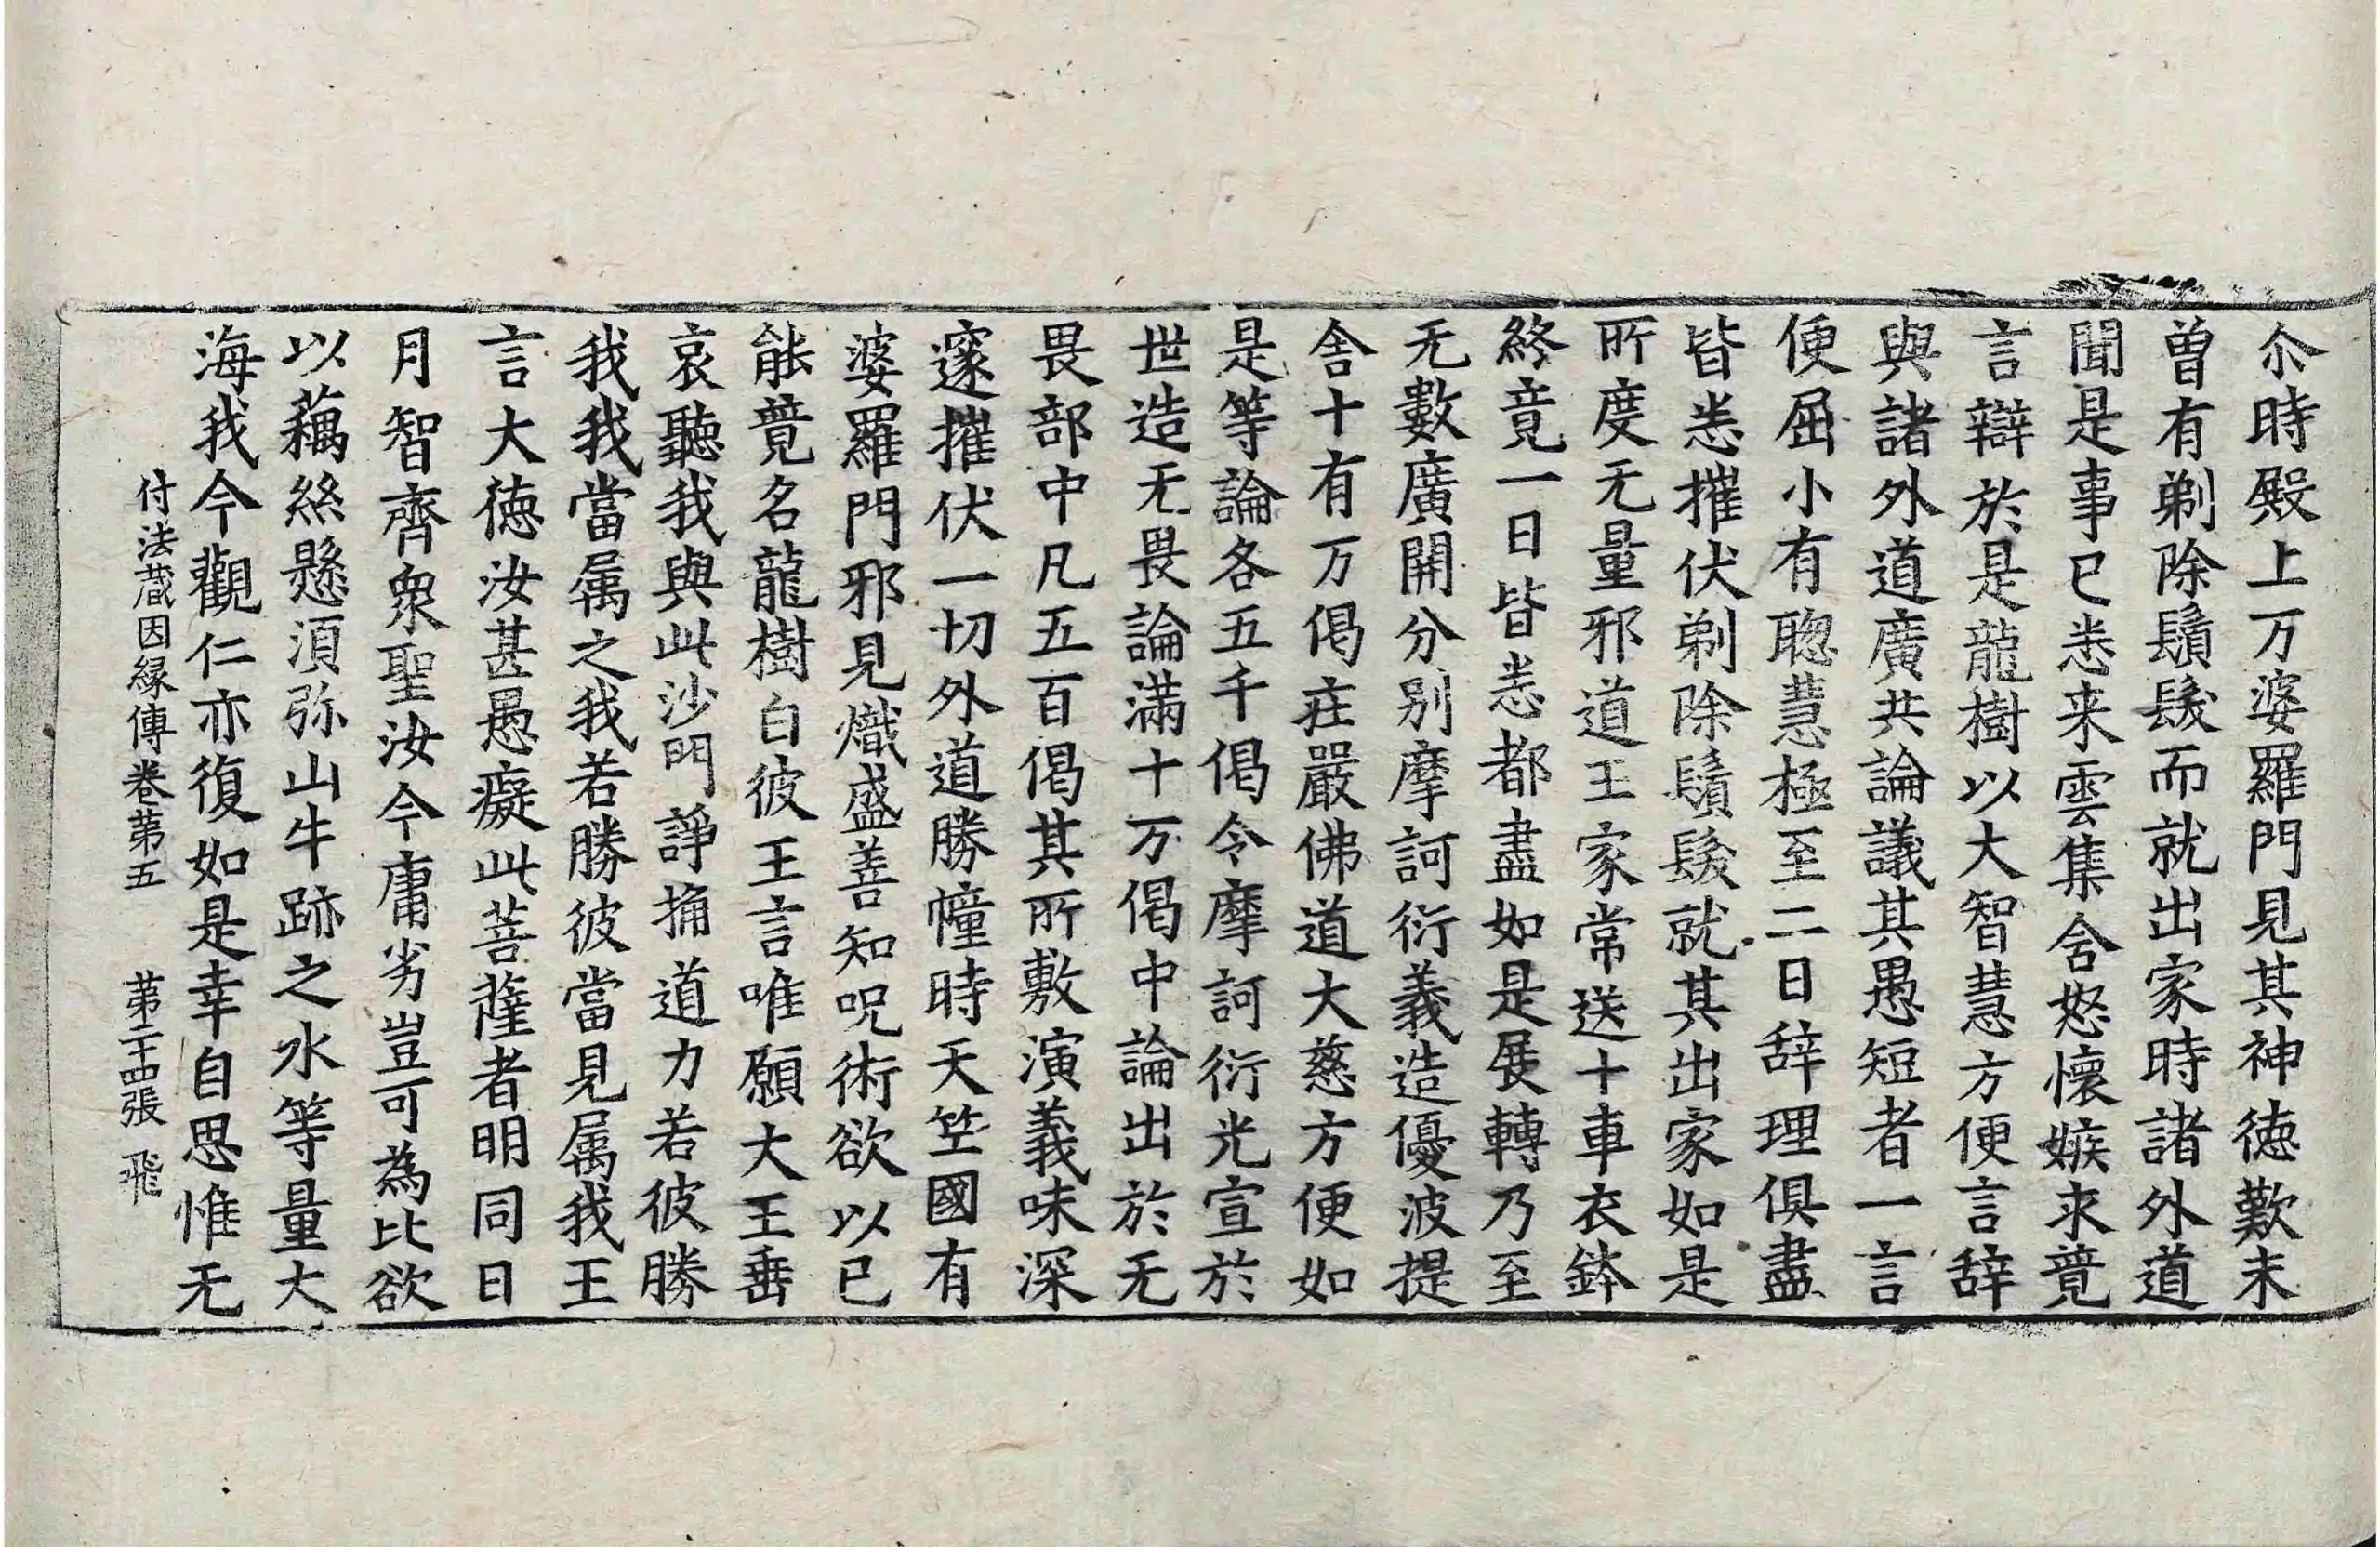 尒時殿上万婆羅門見其神徳歎未
曽有剃除鬚髮而就出家時諸外道
聞是事已悉来雲集含怒懷嫉求競
言辯於是龍樹以大智慧方便言辞
與諸外道廣共論議其愚短者一言
便屈小有聦慧極至二日辞理俱盡
皆悉摧伏剃除鬚髮就其出家如是
所度无量邪道王家常送十車衣鉢
終竟一日皆悉都盡如是展轉乃至
无數廣開分別摩訶衍義造優波提
舍十有万偈荘嚴佛道大慈方便如
是等論各五千偈令摩訶衍光宣於
世造无畏論滿十万偈中論出於无
畏部中凡五百偈其所敷演義味深
邃摧伏一切外道勝幢時天竺國有
婆羅門邪見熾盛善知呪術欲以已
能競名龍樹白彼王言唯願大王垂
哀聽我與此沙門諍捔道力若彼勝
我我當属之我若勝彼當見属我王
言大徳汝甚愚癡此菩薩者明同日
月智齊衆聖汝今庸劣豈可為比欲
以藕絲懸湏弥山牛跡之水等量大
海我今觀仁亦復如是幸自思惟无
付法蔵因縁傳卷苐五 苐二十四張 飛